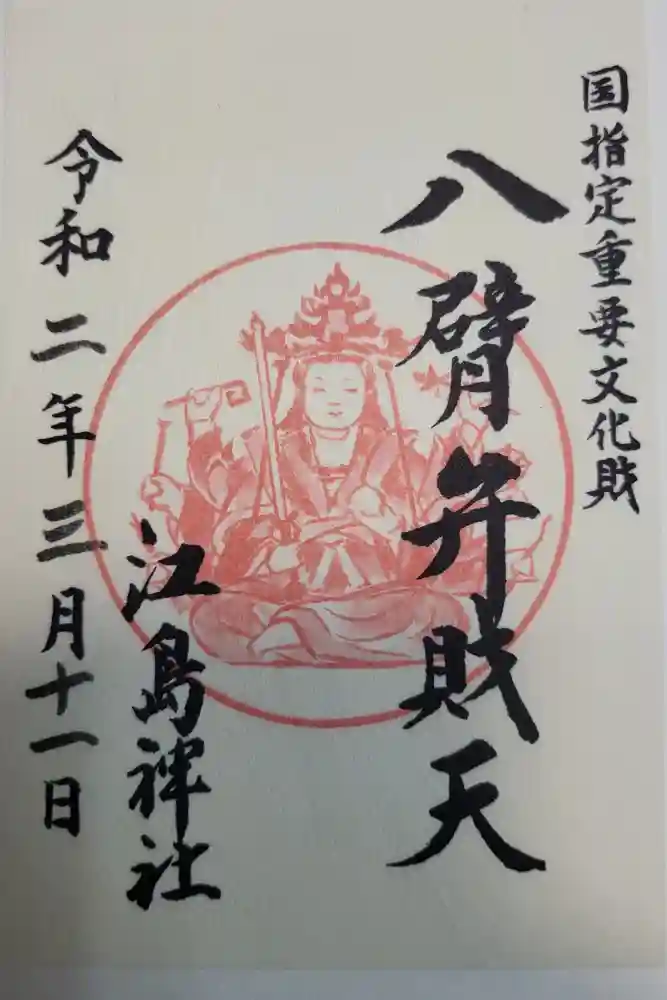 国指定重要文化財
八臂弁財天
江島神社
令和二年三月十一日